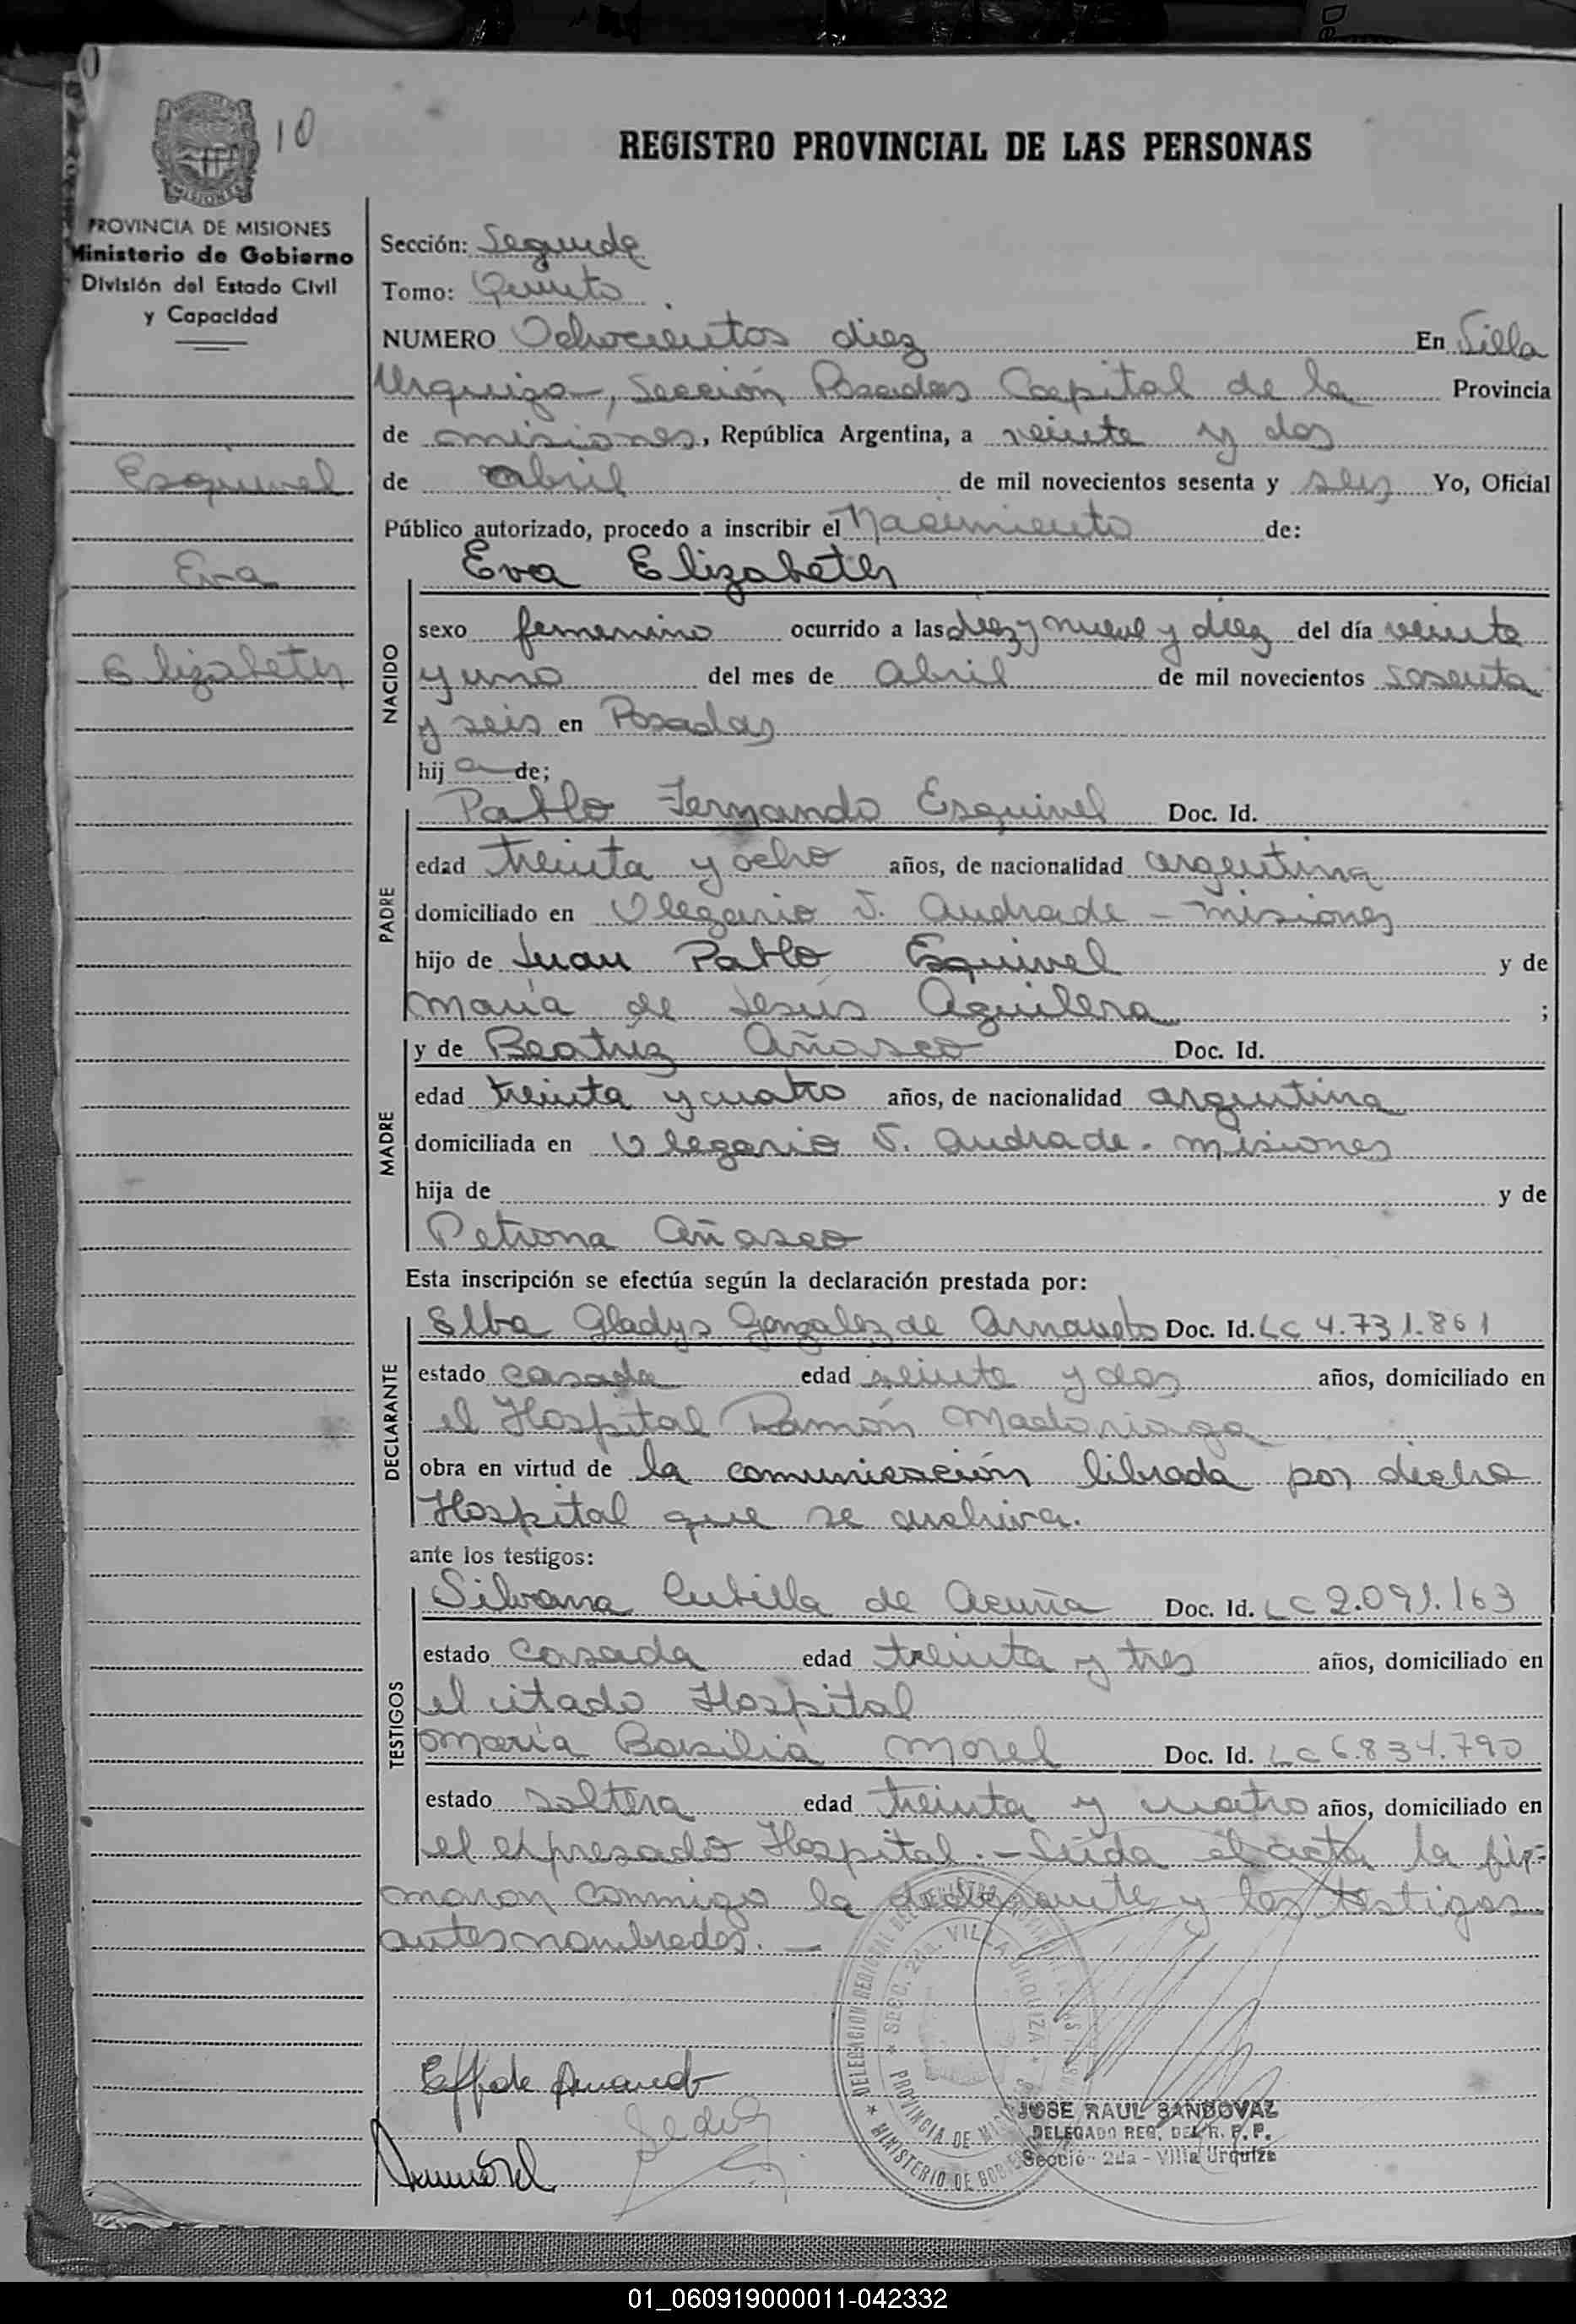 10
REGISTRO PROVINCIAL DE LAS PERSONAS
PROVINCIA DE MISIONES
Ministerio de Gobierno
División del Estado Civil
y Capacidad
Esquivel
Eva
Elizabeth
Sección: Segunda
Tomo: Quinto
NUMERO Ochocientos diez En Villa
Urquiza, Sección Posadas Capital de la Provincia
de misiones, República Argentina, a veinte y dos
de abril de mil novecientos sesenta y seis Yo, Oficial
Público autorizado, procedo a inscribir el Nacimiento de:
Eva Elizabeth
NACIDO
sexo femenino ocurrido a las diez y nueve y diez del día veinte
y uno del mes de abril de mil novecientos sesenta
y seis en Posadas
hija de;
PADRE
Pablo Fernando Esquivel Doc. Id.
edad treinta y ocho años, de nacionalidad argentina
domiciliado en Olegario V. Andrade - misiones
hijo de Juan Pablo Esquivel y de
María de Jesús Aguilera ;
MADRE
y de Beatriz Añasco Doc. Id.
edad treinta y cuatro años, de nacionalidad argentina
domiciliada en Olegario V. Andrade - misiones
hija de y de
Petrona Añasco
Esta inscripción se efectúa según la declaración prestada por:
DECLARANTE
Elba Gladys Gonzalez de Doc. Id. LC 4.731.861
estado casada edad veinte y dos años, domiciliado en
el Hospital Ramón Madariaga
obra en virtud de la comunicación librada por dicho
Hospital que se archiva.
ante los testigos:
TESTIGOS
Silvana Cubilla de Acuña Doc. Id. LC 2.091.163
estado casada edad treinta y tres años, domiciliado en
el citado Hospital
María Basilia Morel Doc. Id. LC 6.834.790
estado soltera edad treinta y cuatro años, domiciliado en
el expresado Hospital. - Leída el acta la fir=
maron conmigo la declarante y los testigos
antes nombrados. -
DELEGACION REGIONAL DEL REGISTRO PROVINCIAL DE LAS PERSONAS
SECC. 2da. VILLA URQUIZA
PROVINCIA DE MISIONES
MINISTERIO DE GOBIERNO
JOSE RAUL SANDOVAL
DELEGADO REG. DEL R. P. P.
Secció 2da - Villa Urquiza
01_060919000011-042332